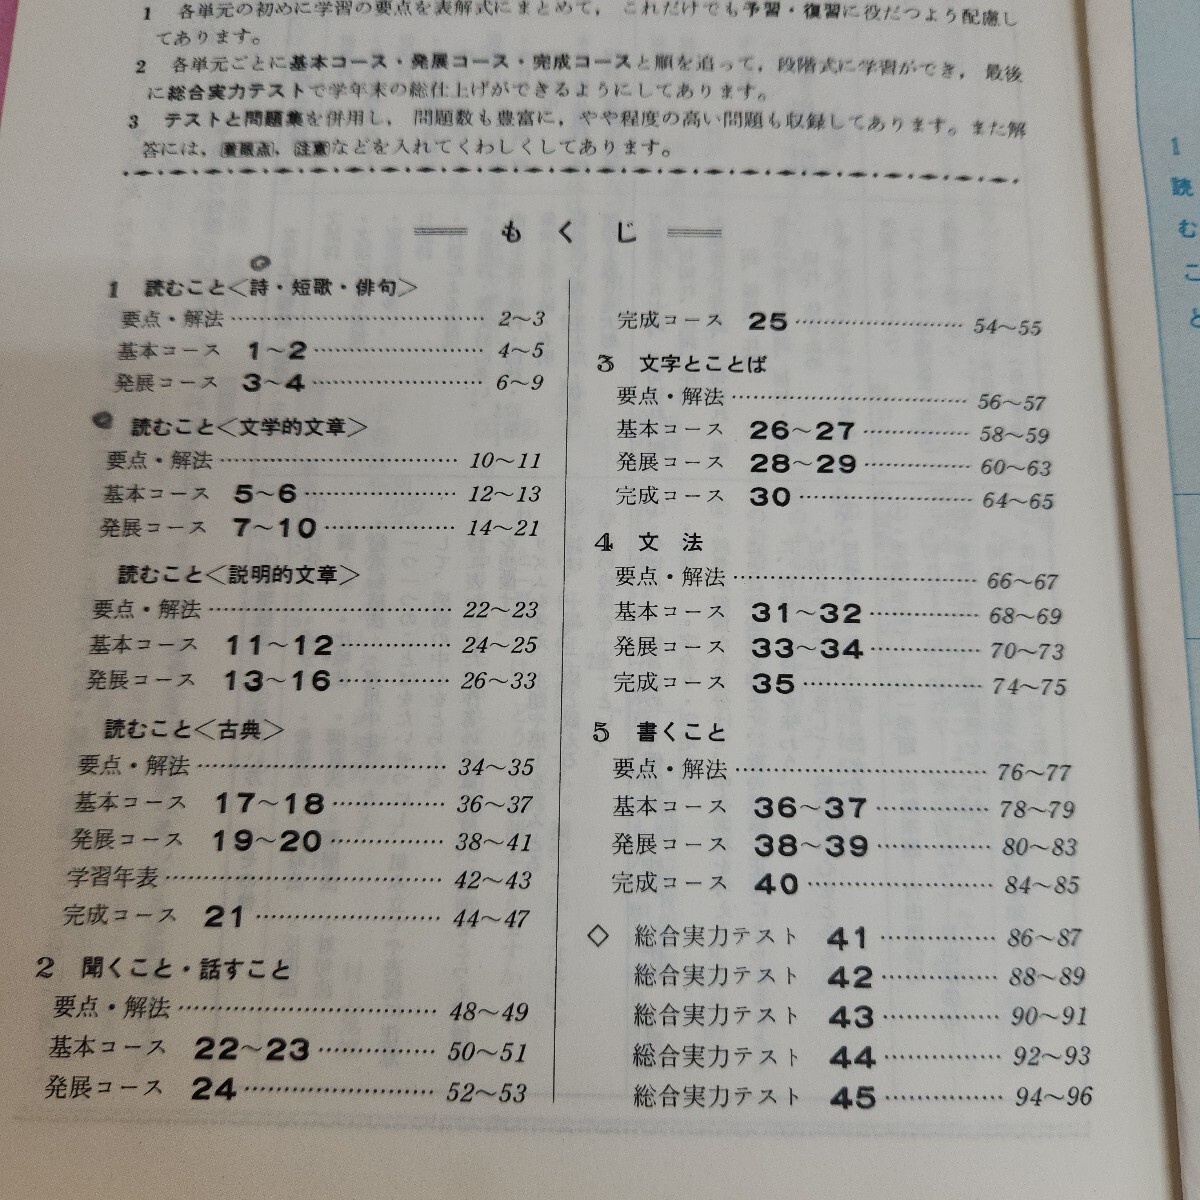 1 各単元の初めに学習の要点を表解式にまとめて，これだけでも予習・復習に役だつよう配慮し
てあります。
2 各単元ごとに基本コース・発展コース・完成コースと順を追って，段階式に学習ができ，最後
に総合実力テストで学年末の総仕上げができるようにしてあります。
3 テストと問題集を併用し，問題数も豊富に，やや程度の高い問題も収録してあります。また解
答には，着眼点、注意などを入れてくわしくしてあります。
もくじ
1 読むこと＜詩・短歌・俳句＞
要点・解法 2～3
基本コース 1～2 4～5
発展コース 3～4 6～9
読むこと＜文学的文章＞
要点・解法 10～11
基本コース 5～6 12～13
発展コース 7～10 14～21
読むこと＜説明的文章＞
要点・解法 22～23
基本コース 11～12 24～25
発展コース 13～16 26～33
読むこと＜古典＞
要点・解法 34～35
基本コース 17～18 36～37
発展コース 19～20 38～41
学習年表 42～43
完成コース 21 44～47
2 聞くこと・話すこと
要点・解法 48～49
基本コース 22～23 50～51
発展コース 24 52～53
完成コース 25 54～55
3 文字とことば
要点・解法 56～57
基本コース 26～27 58～59
発展コース 28～29 60～63
完成コース 30 64～65
4 文法
要点・解法 66～67
基本コース 31～32 68～69
発展コース 33～34 70～73
完成コース 35 74～75
5 書くこと
要点・解法 76～77
基本コース 36～37 78～79
発展コース 38～39 80～83
完成コース 40 84～85
◇ 総合実力テスト 41 86～87
総合実力テスト 42 88～89
総合実力テスト 43 90～91
総合実力テスト 44 92～93
総合実力テスト 45 94～96
1読むこと